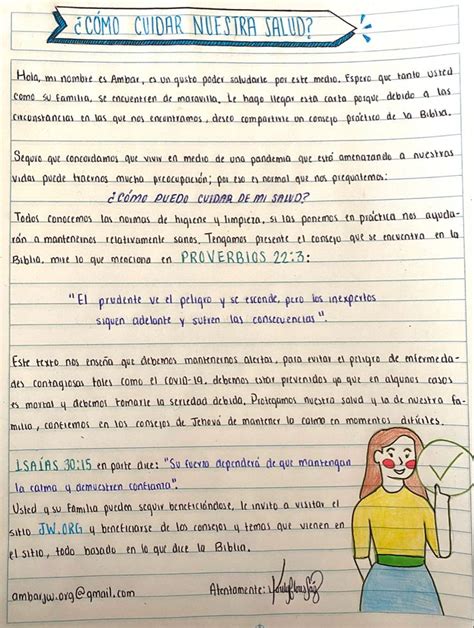 ¿CÓMO CUIDAR NUESTRA SALUD?
Hola, mi nombre es Ambar, es un gusto poder saludarle por este medio. Espero que tanto usted
como su familia, se encuentren de maravilla. Le hago llegar esta carta porque debido a las
circunstancias en las que nos encontramos, deseo compartirle un consejo práctico de la Biblia.
Seguro que concordamos que vivir en medio de una pandemia que está amenazando a nuestras
vidas puede traernos mucha preocupación; por eso es normal que nos preguntemos:
¿CÓMO PUEDO CUIDAR DE MI SALUD?
Todos conocemos las normas de higiene y limpieza, si las ponemos en práctica nos ayuda-
rán a mantenernos relativamente sanos. Tengamos presente el consejo que se encuentra en la
Biblia, mire lo que menciona en PROVERBIOS 22:3:
"El prudente ve el peligro y se esconde, pero los inexpertos
siguen adelante y sufren las consecuencias".
Este texto nos enseña que debemos mantenernos alertas, para evitar el peligro de enfermeda-
des contagiosas tales como el covid-19, debemos estar prevenidos ya que en algunos casos
es mortal y debemos tomarle la seriedad debida. Protegamos nuestra salud y la de nuestra fa-
milia, confiemos en los consejos de Jehová de mantener la calma en momentos difíciles.
ISAÍAS 30:15 en parte dice: "Su fuerza dependerá de que mantengan
la calma y demuestren confianza".
Usted y su familia pueden seguir beneficiándose, le invito a visitar el
sitio JW.ORG y beneficiarse de los consejos y temas que vienen en
el sitio, todo basado en lo que dice la Biblia.
ambarjw.org@gmail.com Atentamente: